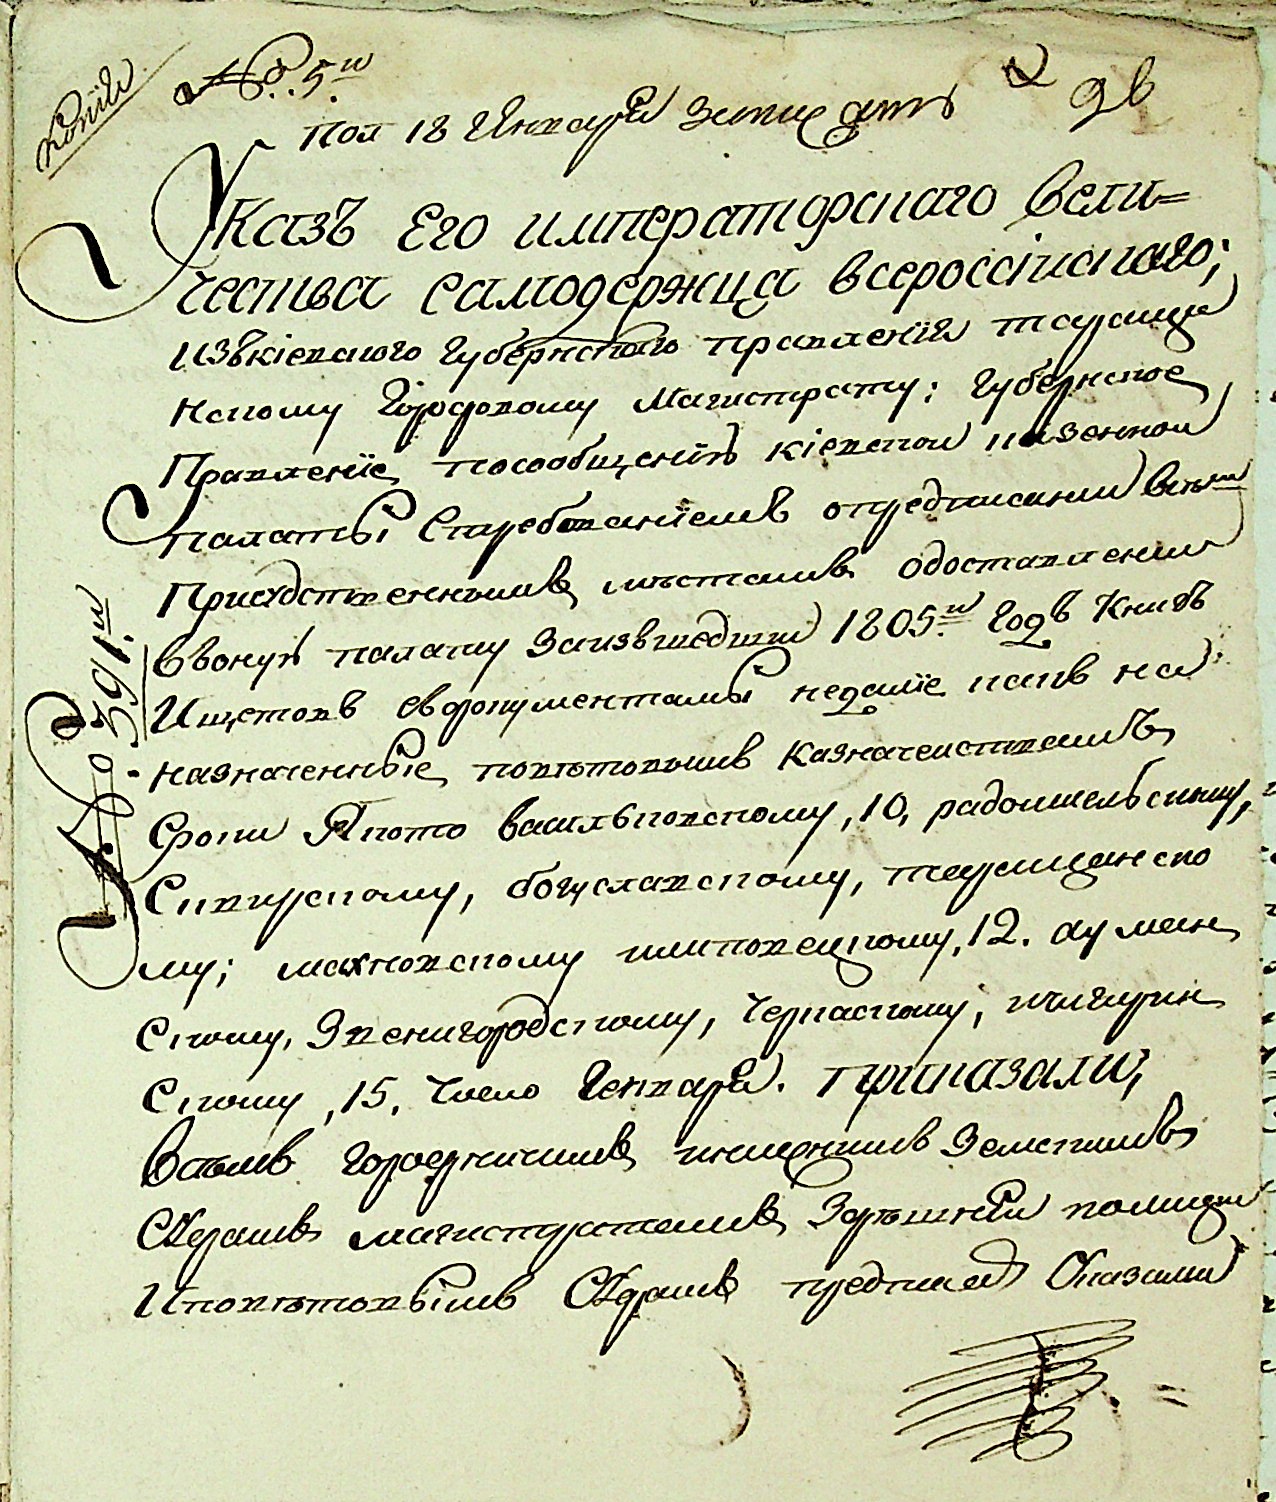 Копия
№. 5.й
Пол 18 Января
Указъ Его императорскаго вели=
чества самодержца всероссiйскаго;
изъ кiевскаго губернскаго правленiя таращан
нскому городовому магистрату; губернское
Правленiе, по сообщенiю кiевской казенной
палаты с требованiемъ о предписанiи всемъ
Присудственнымъ местамъ о доставленiи
в оную палату за изшедший 1805.й годъ книгъ
и щетовъ с документамы не далiе какъ на
назначенныiе поветовымъ казначействамъ
Сроки Якото васильковскому, 10, радомысльскому,
Сквирскому, богуславскому, таращанско
му; махновскому и липовецкому, 12. а уман
скому, Звенигородскому, Черкаскому, и чигирин
скому, 15. число генваря. Приказали;
Всемъ городничимъ и нижнимъ земскимъ
Судамъ магистратамъ, здешней полицiи
и поветовымъ Судамъ предписать Указами
№ 391.й